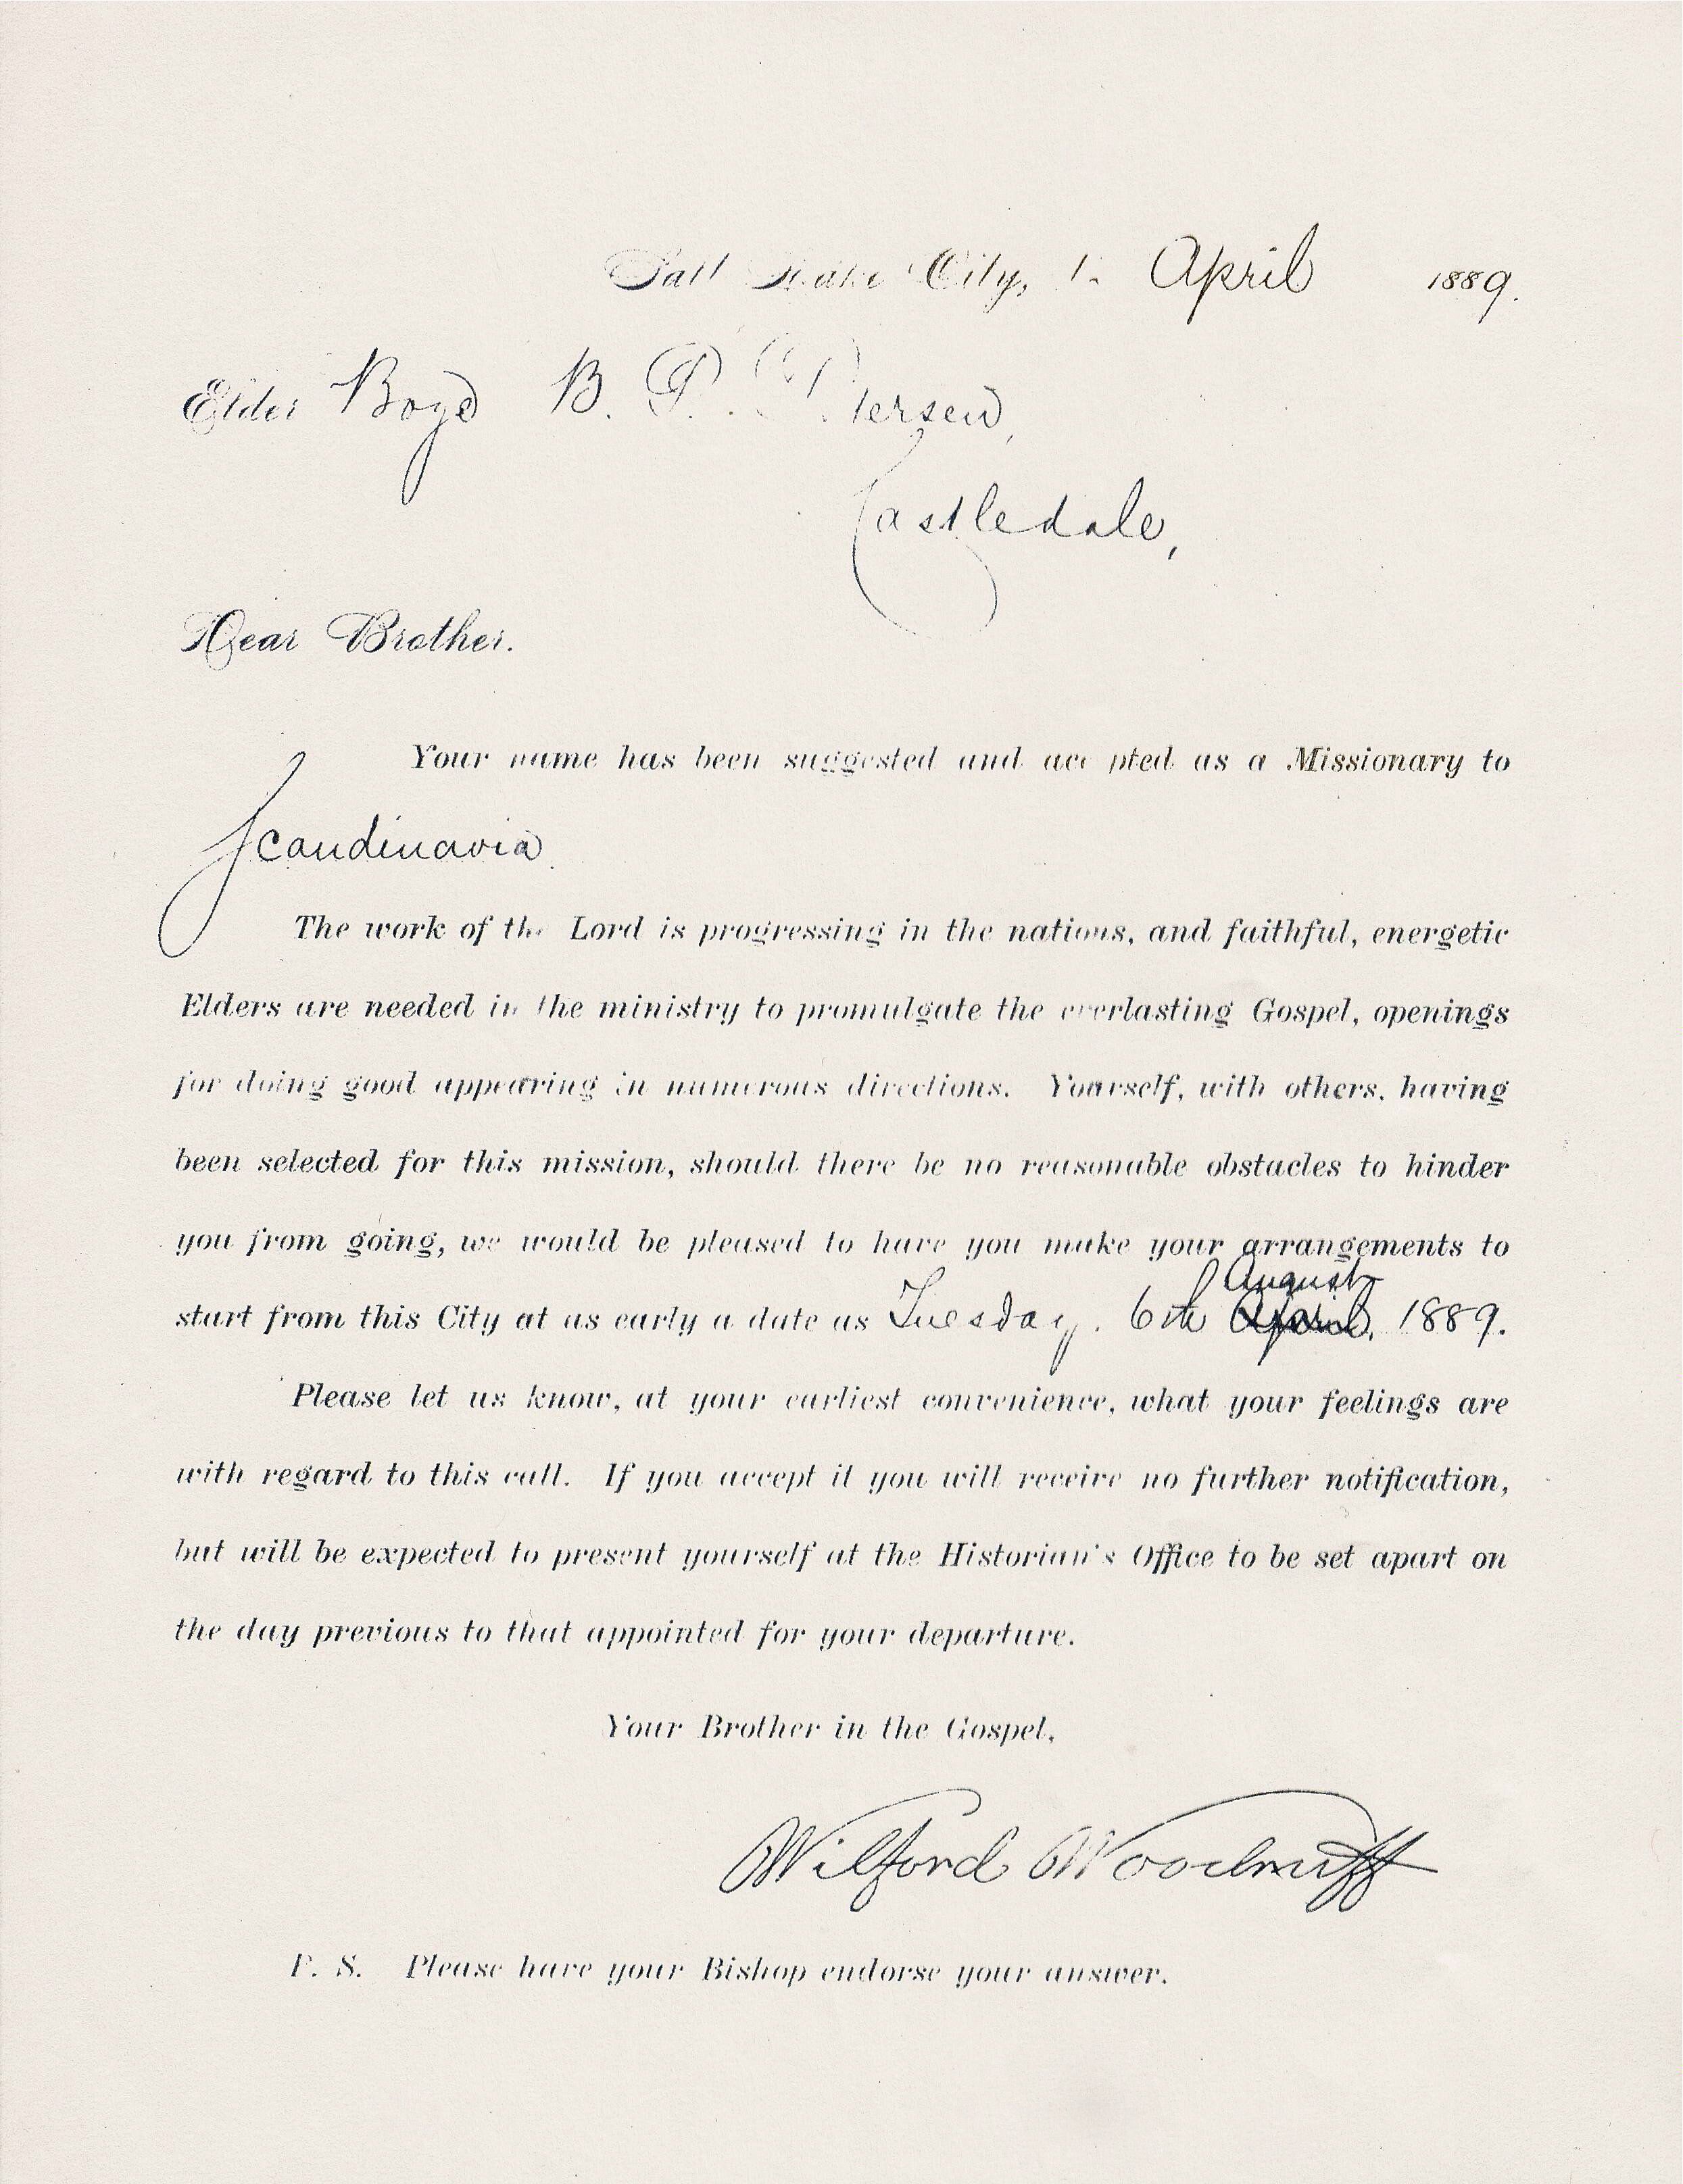 Salt Lake City, 1. April 1889.
Elder Boye B. P. Petersen,
Castledale,
Dear Brother.
Your name has been suggested and accepted as a Missionary to
Scandinavia.
The work of the Lord is progressing in the nations, and faithful, energetic
Elders are needed in the ministry to promulgate the everlasting Gospel, openings
for doing good appearing in numerous directions. Yourself, with others, having
been selected for this mission, should there be no reasonable obstacles to hinder
you from going, we would be pleased to have you make your arrangements to
August
start from this City at as early a date as Tuesday. 6th April, 1889.
Please let us know, at your earliest convenience, what your feelings are
with regard to this call. If you accept it you will receive no further notification,
but will be expected to present yourself at the Historian's Office to be set apart on
the day previous to that appointed for your departure.
Your Brother in the Gospel,
Wilford Woodruff
P. S. Please have your Bishop endorse your answer.